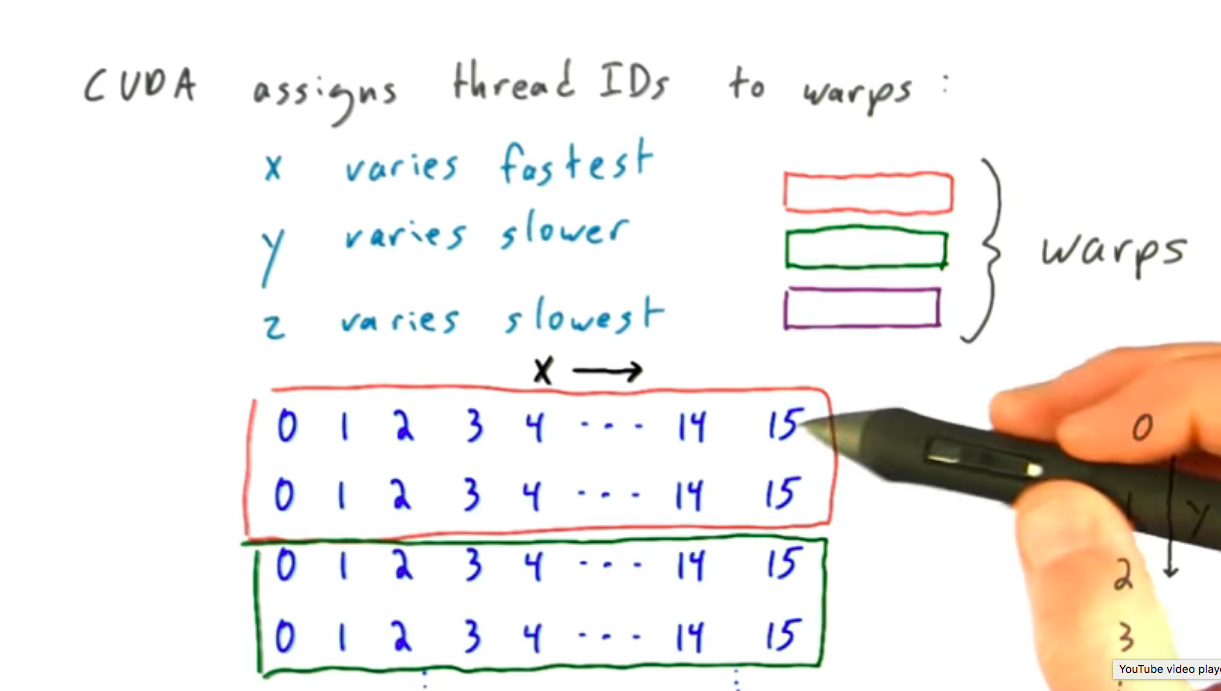 CUDA assigns thread IDs to warps:
x varies fastest
y varies slower
z varies slowest
warps
X →
0 1 2 3 4 ... 14 15 0
0 1 2 3 4 ... 14 15 1 y
0 1 2 3 4 ... 14 15 2
0 1 2 3 4 ... 14 15 3
YouTube video playe